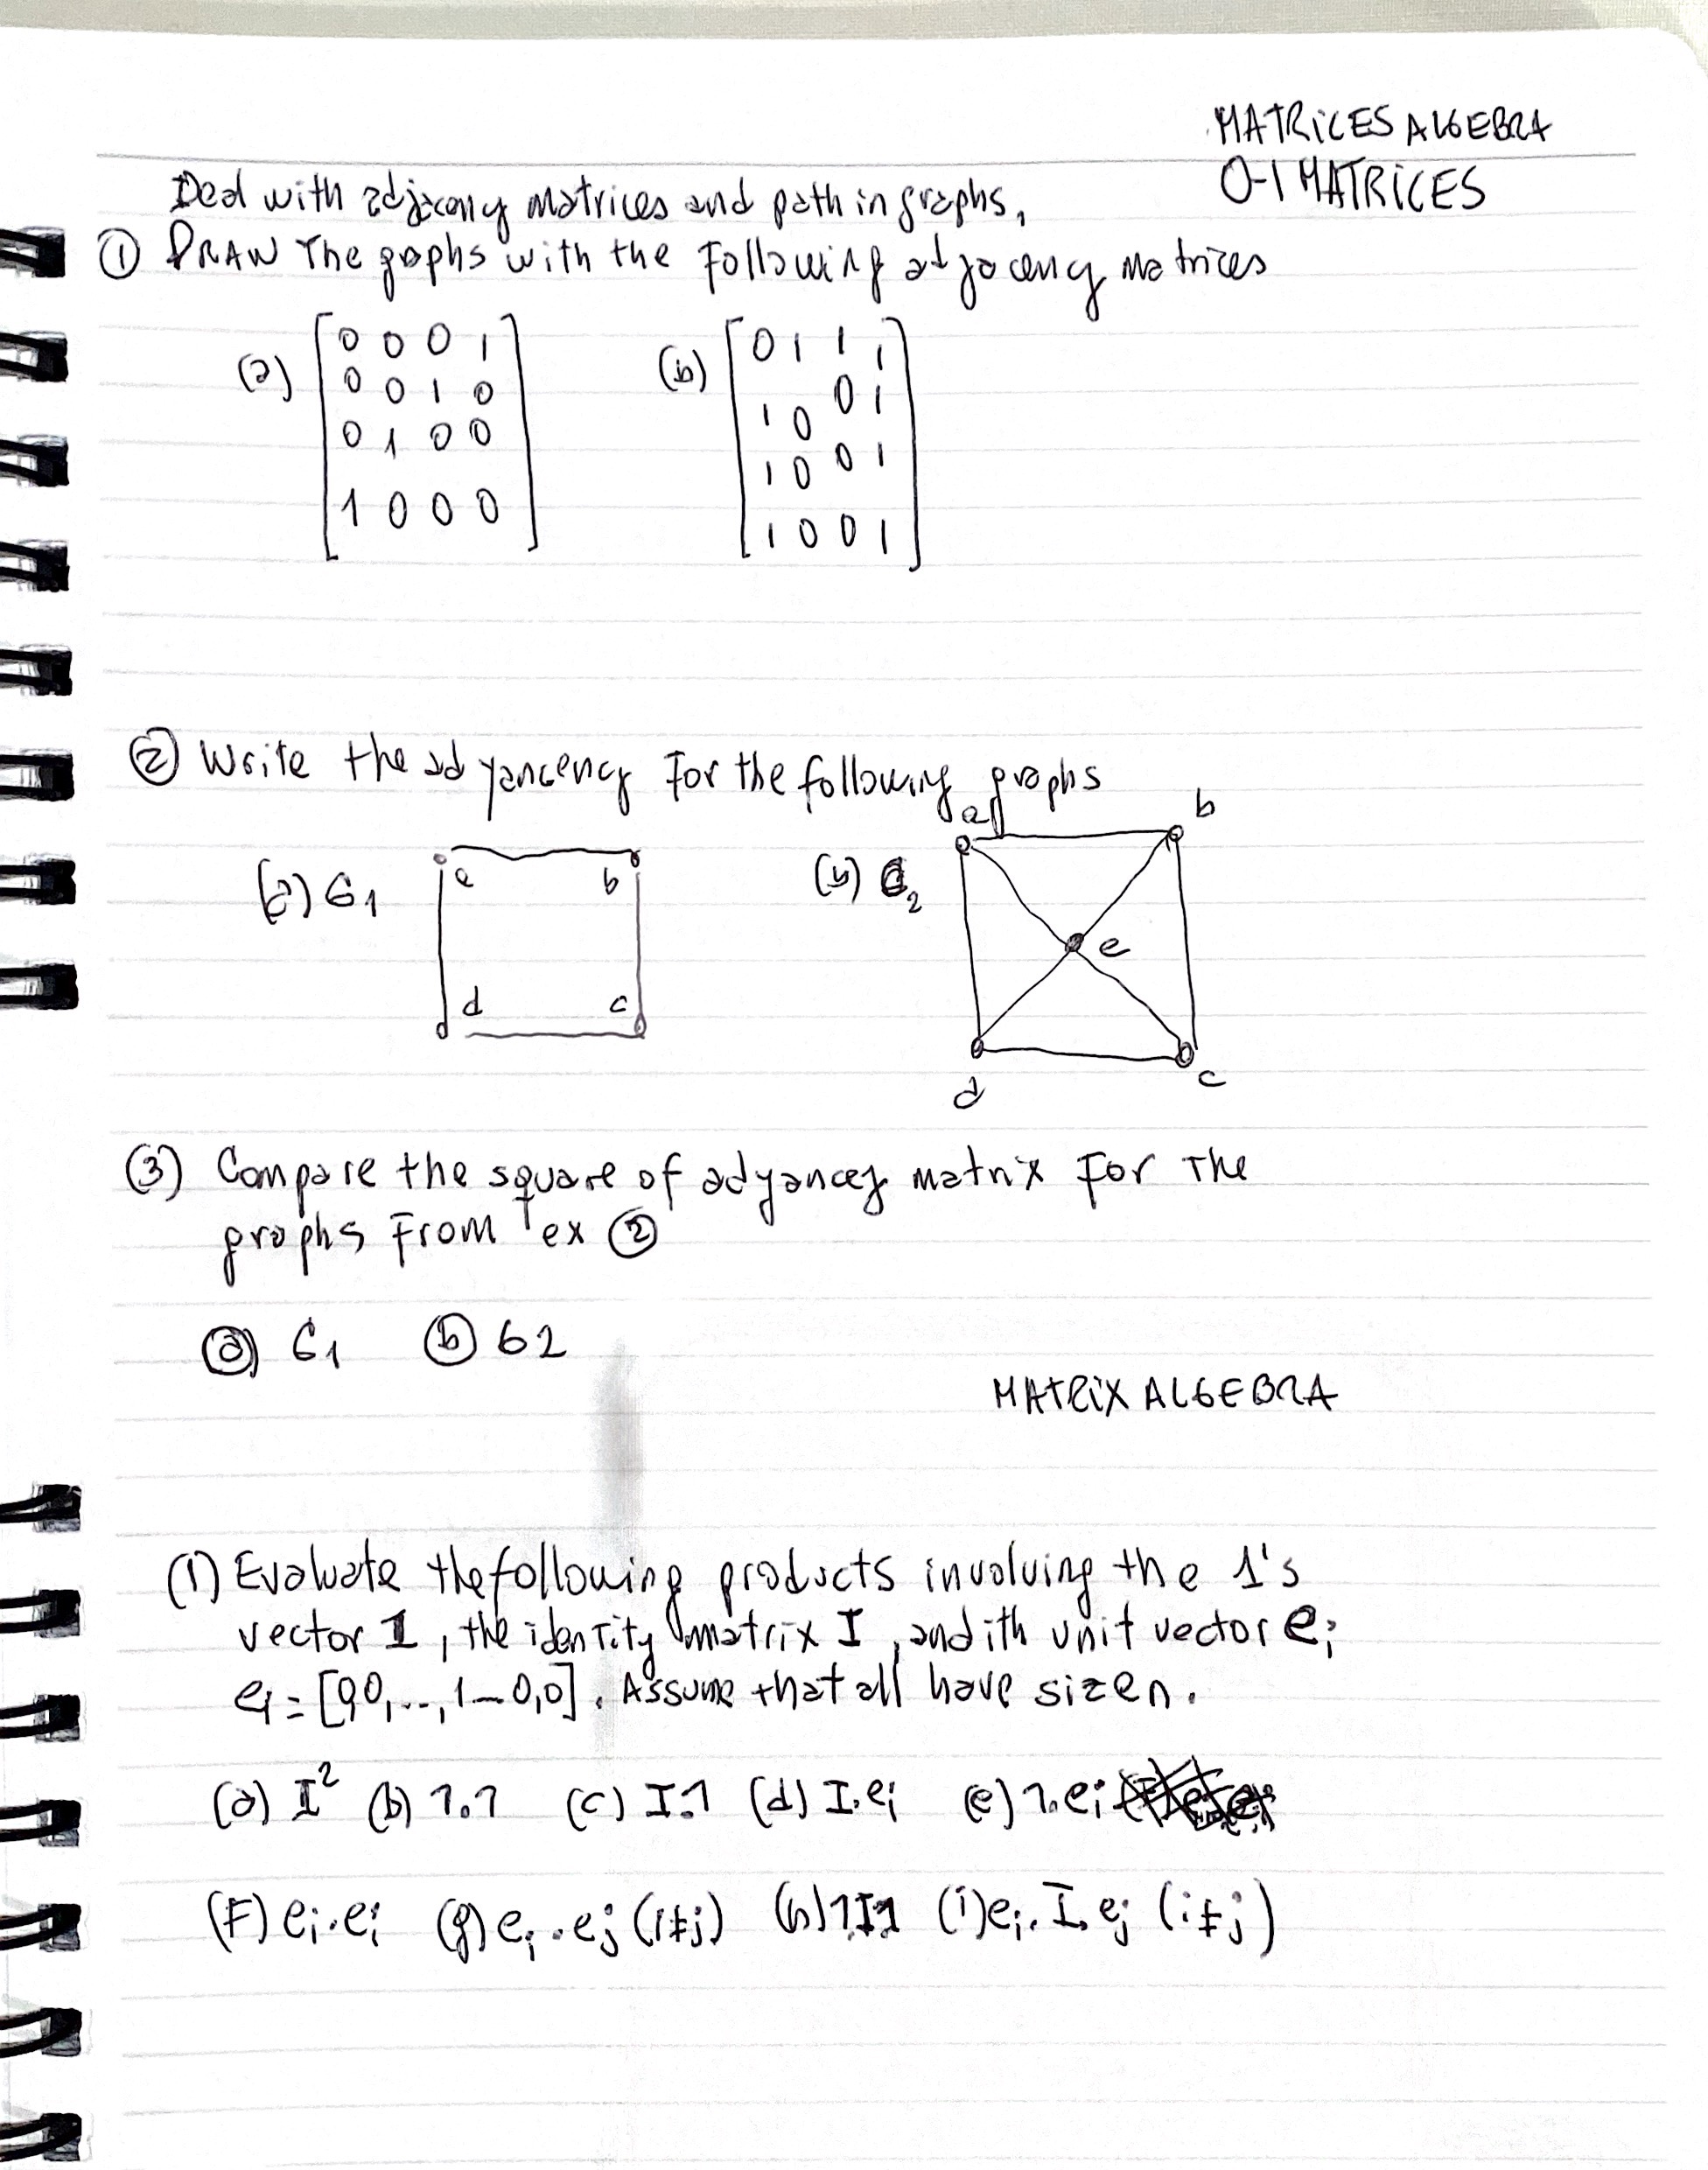 MATRICES ALGEBRA
0-1 MATRICES
Deal with adjacency matrices and path in graphs,
① DRAW The graphs with the following adjacency matrices
(a) [0 0 0 1
0 0 1 0
0 1 0 0
1 0 0 0]
(b) [0 1 1 1
1 0 0 1
1 0 0 1
1 0 0 1]
② Write the adyancency for the following graphs
(a) G1
a b
d c
(b) G2
a b
e
d c
(3) Compare the square of adyancey matrix for the
graphs from ex ②
ⓐ G1 ⓑ G2
MATRIX ALGEBRA
(1) Evaluate the following products involving the 1's
vector 1, the identity matrix I, and ith unit vector ei
ei = [0,0,..,1–0,0]. Assume that all have size n.
(a) I² (b) 1.1 (c) I.1 (d) I.ei (e) 1.ei
(F) ei.ei (g) ei.ej (i≠j) (h) 1.I.1 (i) ei.I.ej (i≠j)